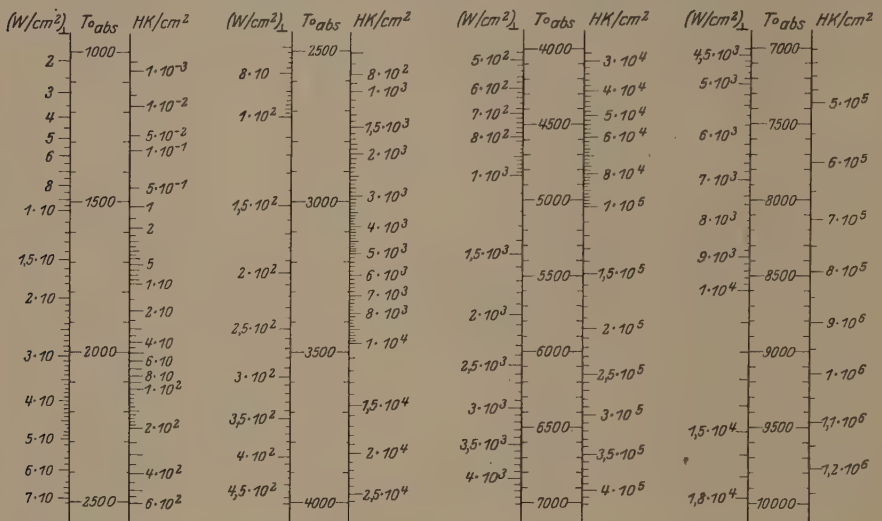 (W/cm²)⊥ T°abs HK/cm²
2
3
4
5
6
8
1·10
1,5·10
2·10
3·10
4·10
5·10
6·10
7·10
1000
1500
2000
2500
1·10⁻³
1·10⁻²
5·10⁻²
1·10⁻¹
5·10⁻¹
1
2
5
1·10
2·10
4·10
6·10
8·10
1·10²
2·10²
4·10²
6·10²
(W/cm²)⊥ T°abs HK/cm²
8·10
1·10²
1,5·10²
2·10²
2,5·10²
3·10²
3,5·10²
4·10²
4,5·10²
2500
3000
3500
4000
8·10²
1·10³
1,5·10³
2·10³
3·10³
4·10³
5·10³
6·10³
7·10³
8·10³
1·10⁴
1,5·10⁴
2·10⁴
2,5·10⁴
(W/cm²)⊥ T°abs HK/cm²
5·10²
6·10²
7·10²
8·10²
1·10³
1,5·10³
2·10³
2,5·10³
3·10³
3,5·10³
4·10³
4000
4500
5000
5500
6000
6500
7000
3·10⁴
4·10⁴
5·10⁴
6·10⁴
8·10⁴
1·10⁵
1,5·10⁵
2·10⁵
2,5·10⁵
3·10⁵
3,5·10⁵
4·10⁵
(W/cm²)⊥ T°abs HK/cm²
4,5·10³
5·10³
6·10³
7·10³
8·10³
9·10³
1·10⁴
1,5·10⁴
1,8·10⁴
7000
7500
8000
8500
9000
9500
10000
5·10⁵
6·10⁵
7·10⁵
8·10⁵
9·10⁵
1·10⁶
1,1·10⁶
1,2·10⁶